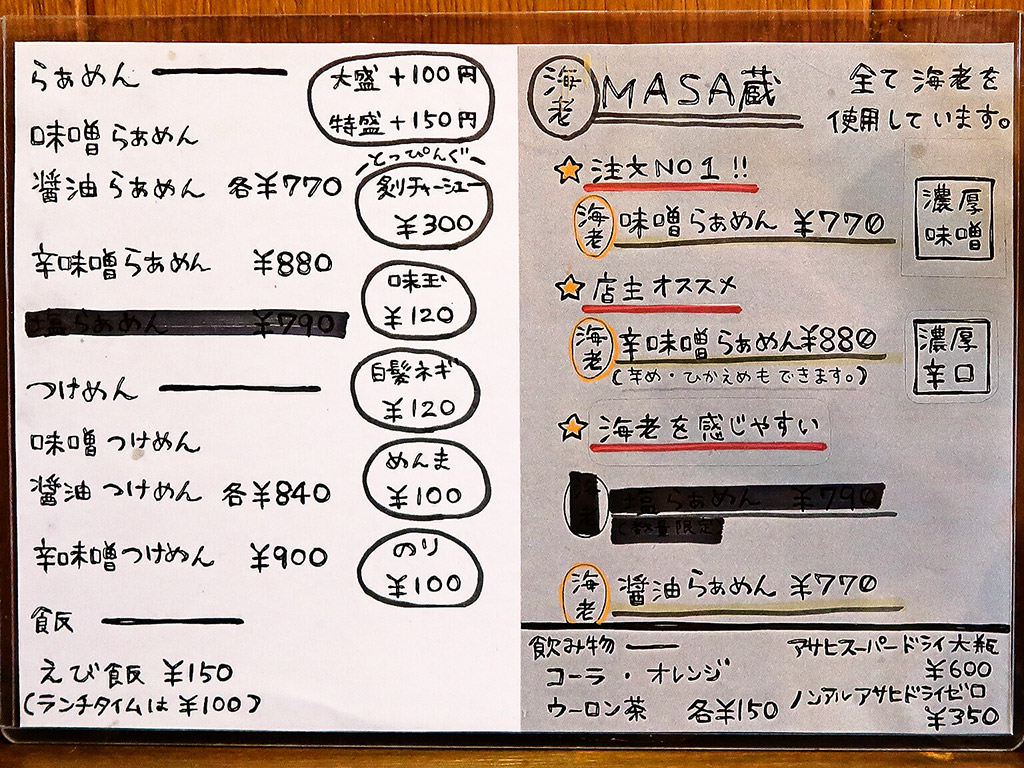 らぁめん
味噌らぁめん
醤油らぁめん 各¥770
辛味噌らぁめん ¥880
塩らぁめん ¥790
つけめん
味噌つけめん
醤油つけめん 各¥840
辛味噌つけめん ¥900
食反
えび飯 ¥150
(ランチタイムは ¥100)
大盛+100円
特盛+150円
とっぴんぐ
炙りチャーシュー
¥300
味玉
¥120
白髪ネギ
¥120
めんま
¥100
のり
¥100
海老 MASA蔵
全て海老を
使用しています。
注文NO1!!
海老 味噌らぁめん ¥770
濃厚
味噌
店主オススメ
海老 辛味噌らぁめん¥880
(辛め・ひかえめもできます。)
濃厚
辛口
海老を感じやすい
塩らぁめん ¥790
(数量限定)
海老 醤油らぁめん ¥770
飲み物
コーラ・オレンジ
ウーロン茶 各¥150
アサヒスーパードライ大瓶
¥600
ノンアルアサヒドライゼロ
¥350